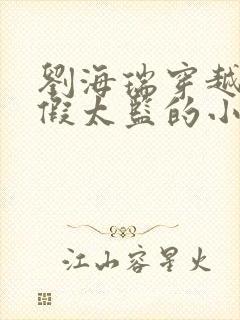 劉海瑞穿越
假太監的小
江山容星火